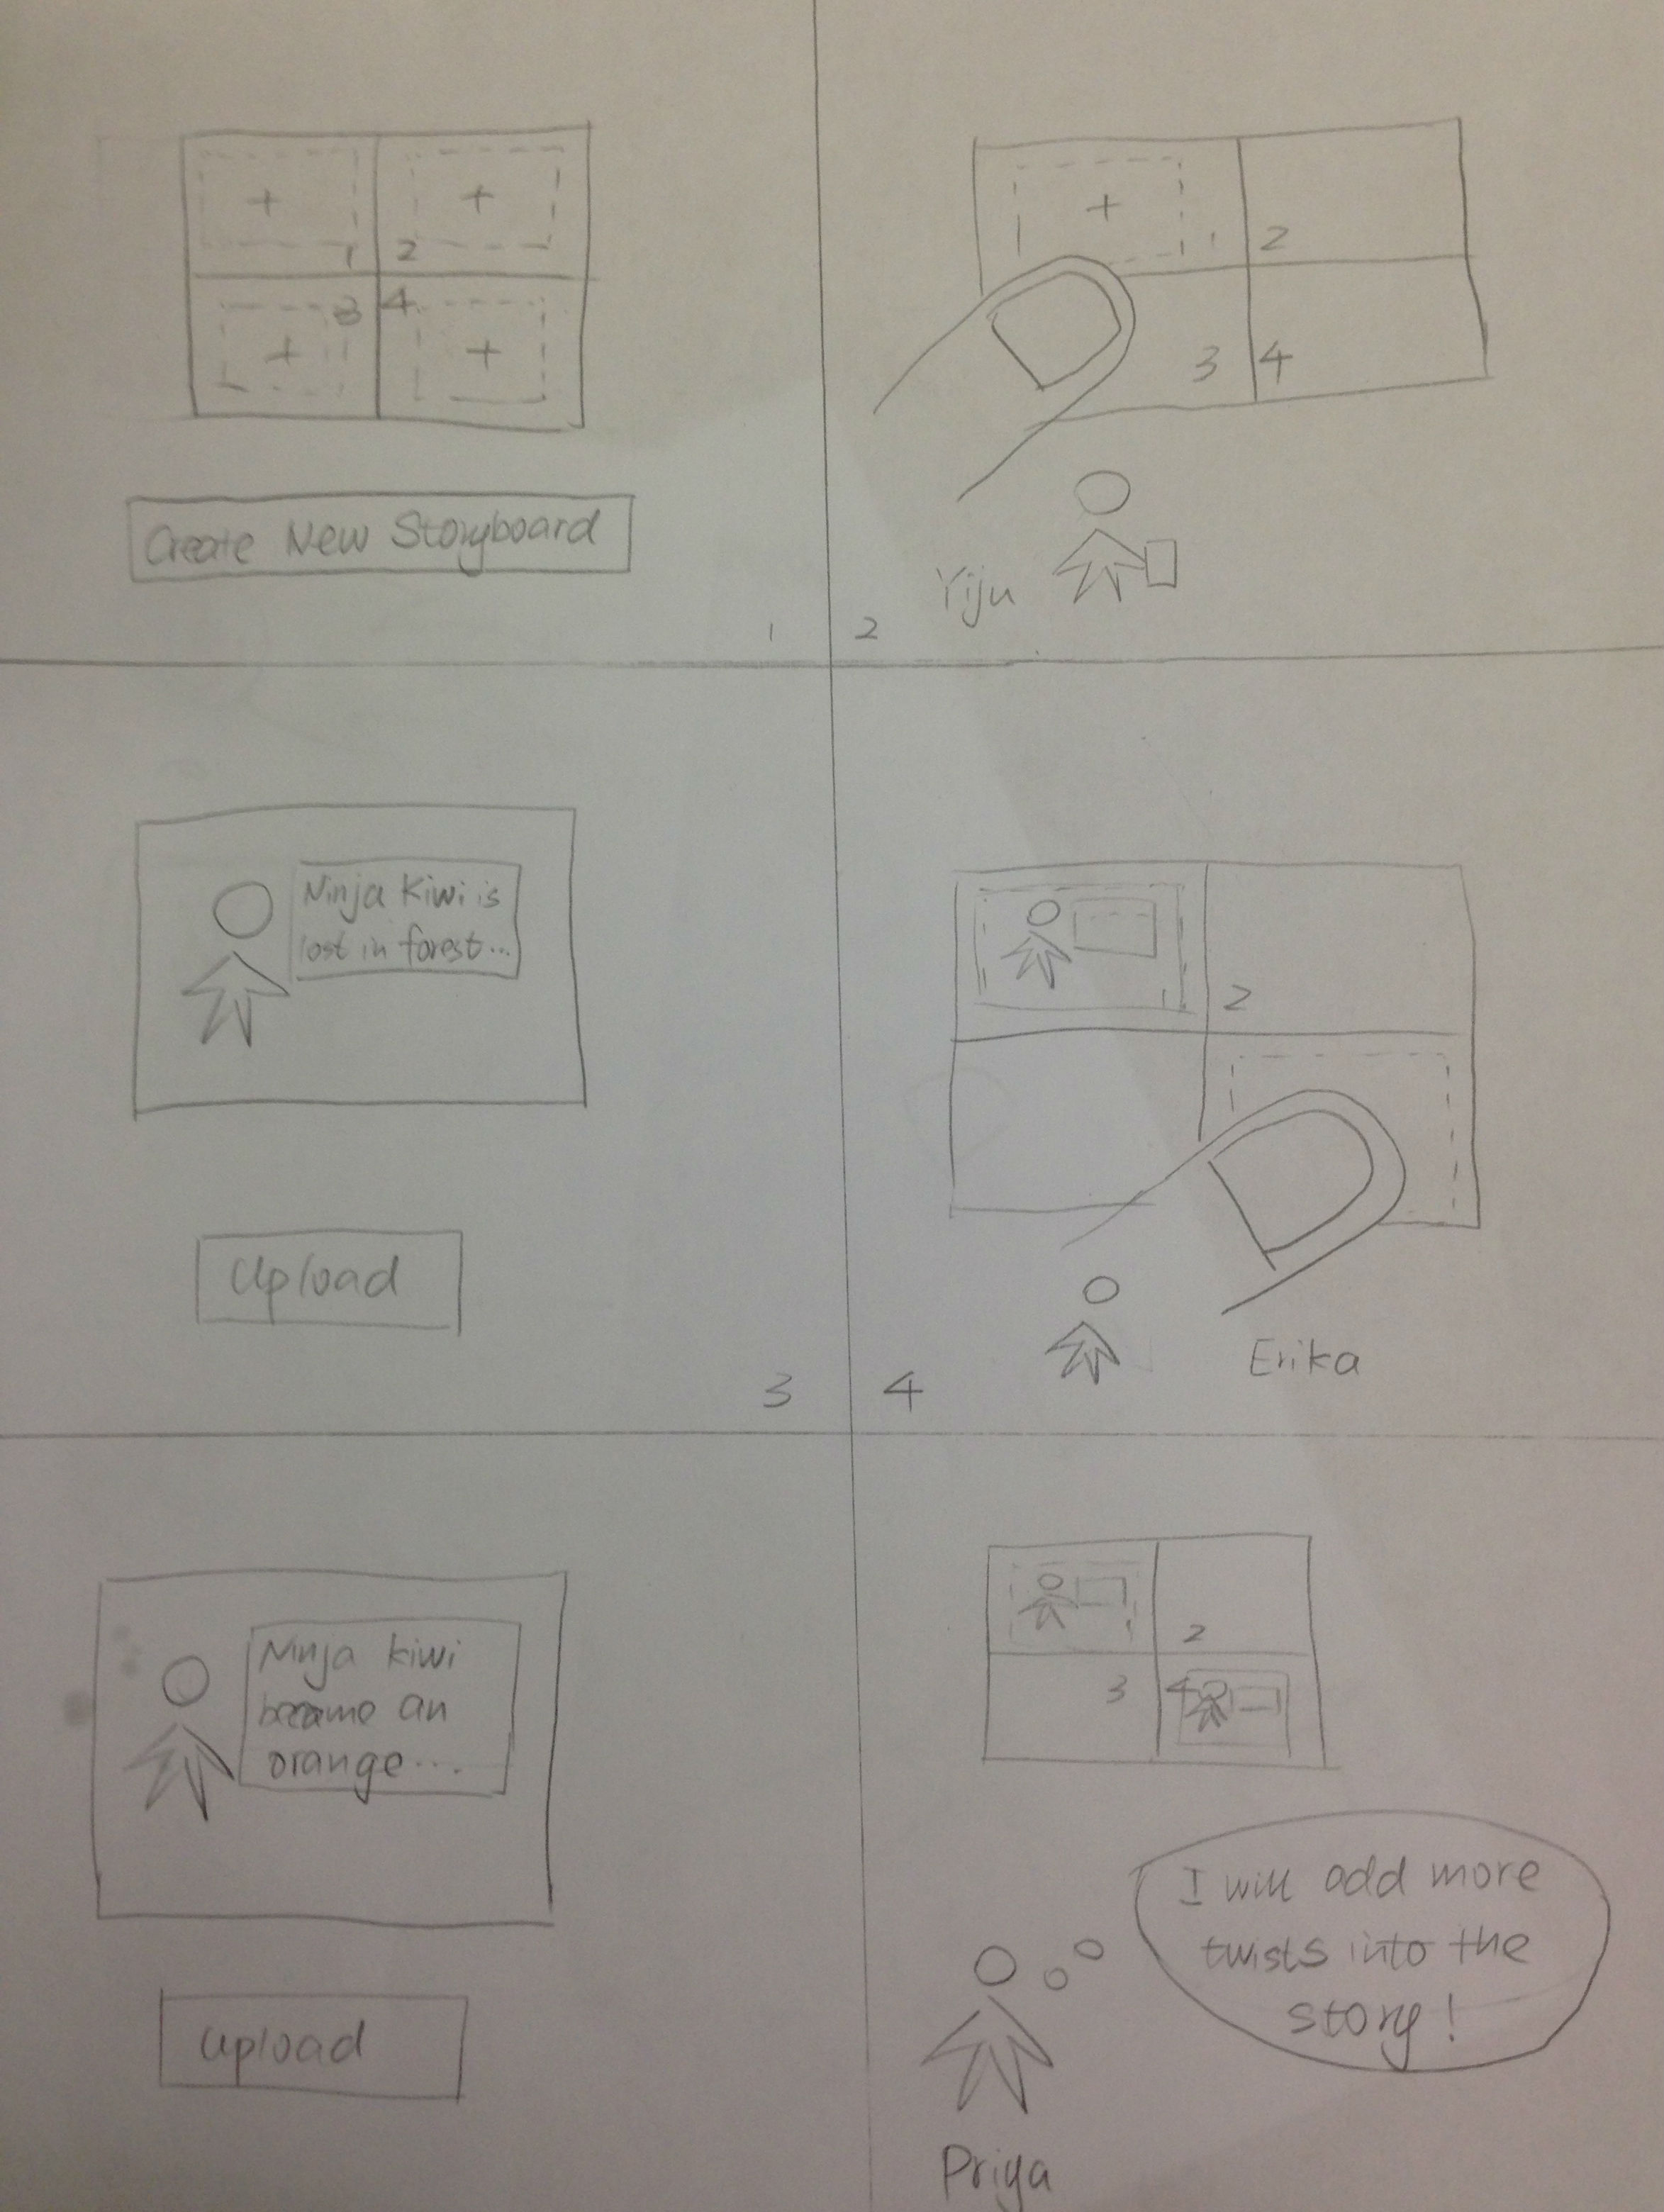 +
+
1
2
3
4
+
+
Create New Storyboard
1
+
1
2
3
4
Yiju
2
Ninja Kiwi is
lost in forest...
Upload
3
1
2
Erika
4
Ninja kiwi
became an
orange...
Upload
1
2
3
4
I will add more
twists into the
story!
Priya